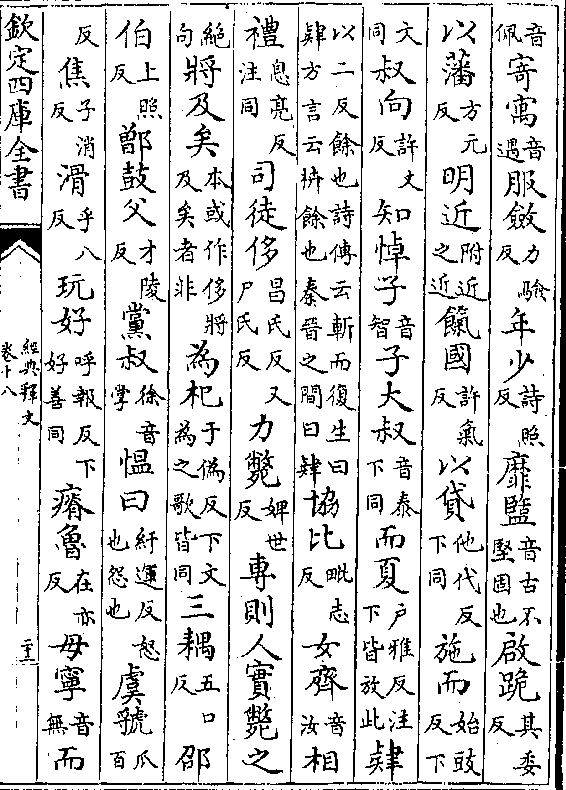 音佩寄寓音遇服斂力驗反年少詩照反靡盬音古不堅固也啟跪其委反
以藩方元反明近附近之近餼國許氣反以貸他代反下同施而始豉反下
文同叔向許丈反知悼子音智子大叔音泰下同而夏戶雅反注下皆放此肄
以二反餘也詩傳云斬而復生曰肄方言云枿餘也秦晉之間曰肄協比毗志反女齊音汝相
禮息亮反注同司徒侈昌氏反又尸氏反力斃婢世反專則人實斃之
絕句將及矣本或作侈將及矣者非為杞于偽反下文為之歌皆同三耦五口反郘
伯上照反鄫鼓父才陵反黨叔徐音掌愠曰紆運反怒也怨也虞虢瓜百
反焦子消反滑乎八反玩好呼報反下好善同瘠魯在亦反毋寧音無而
欽定四庫全書
經典釋文
卷十八
二十三